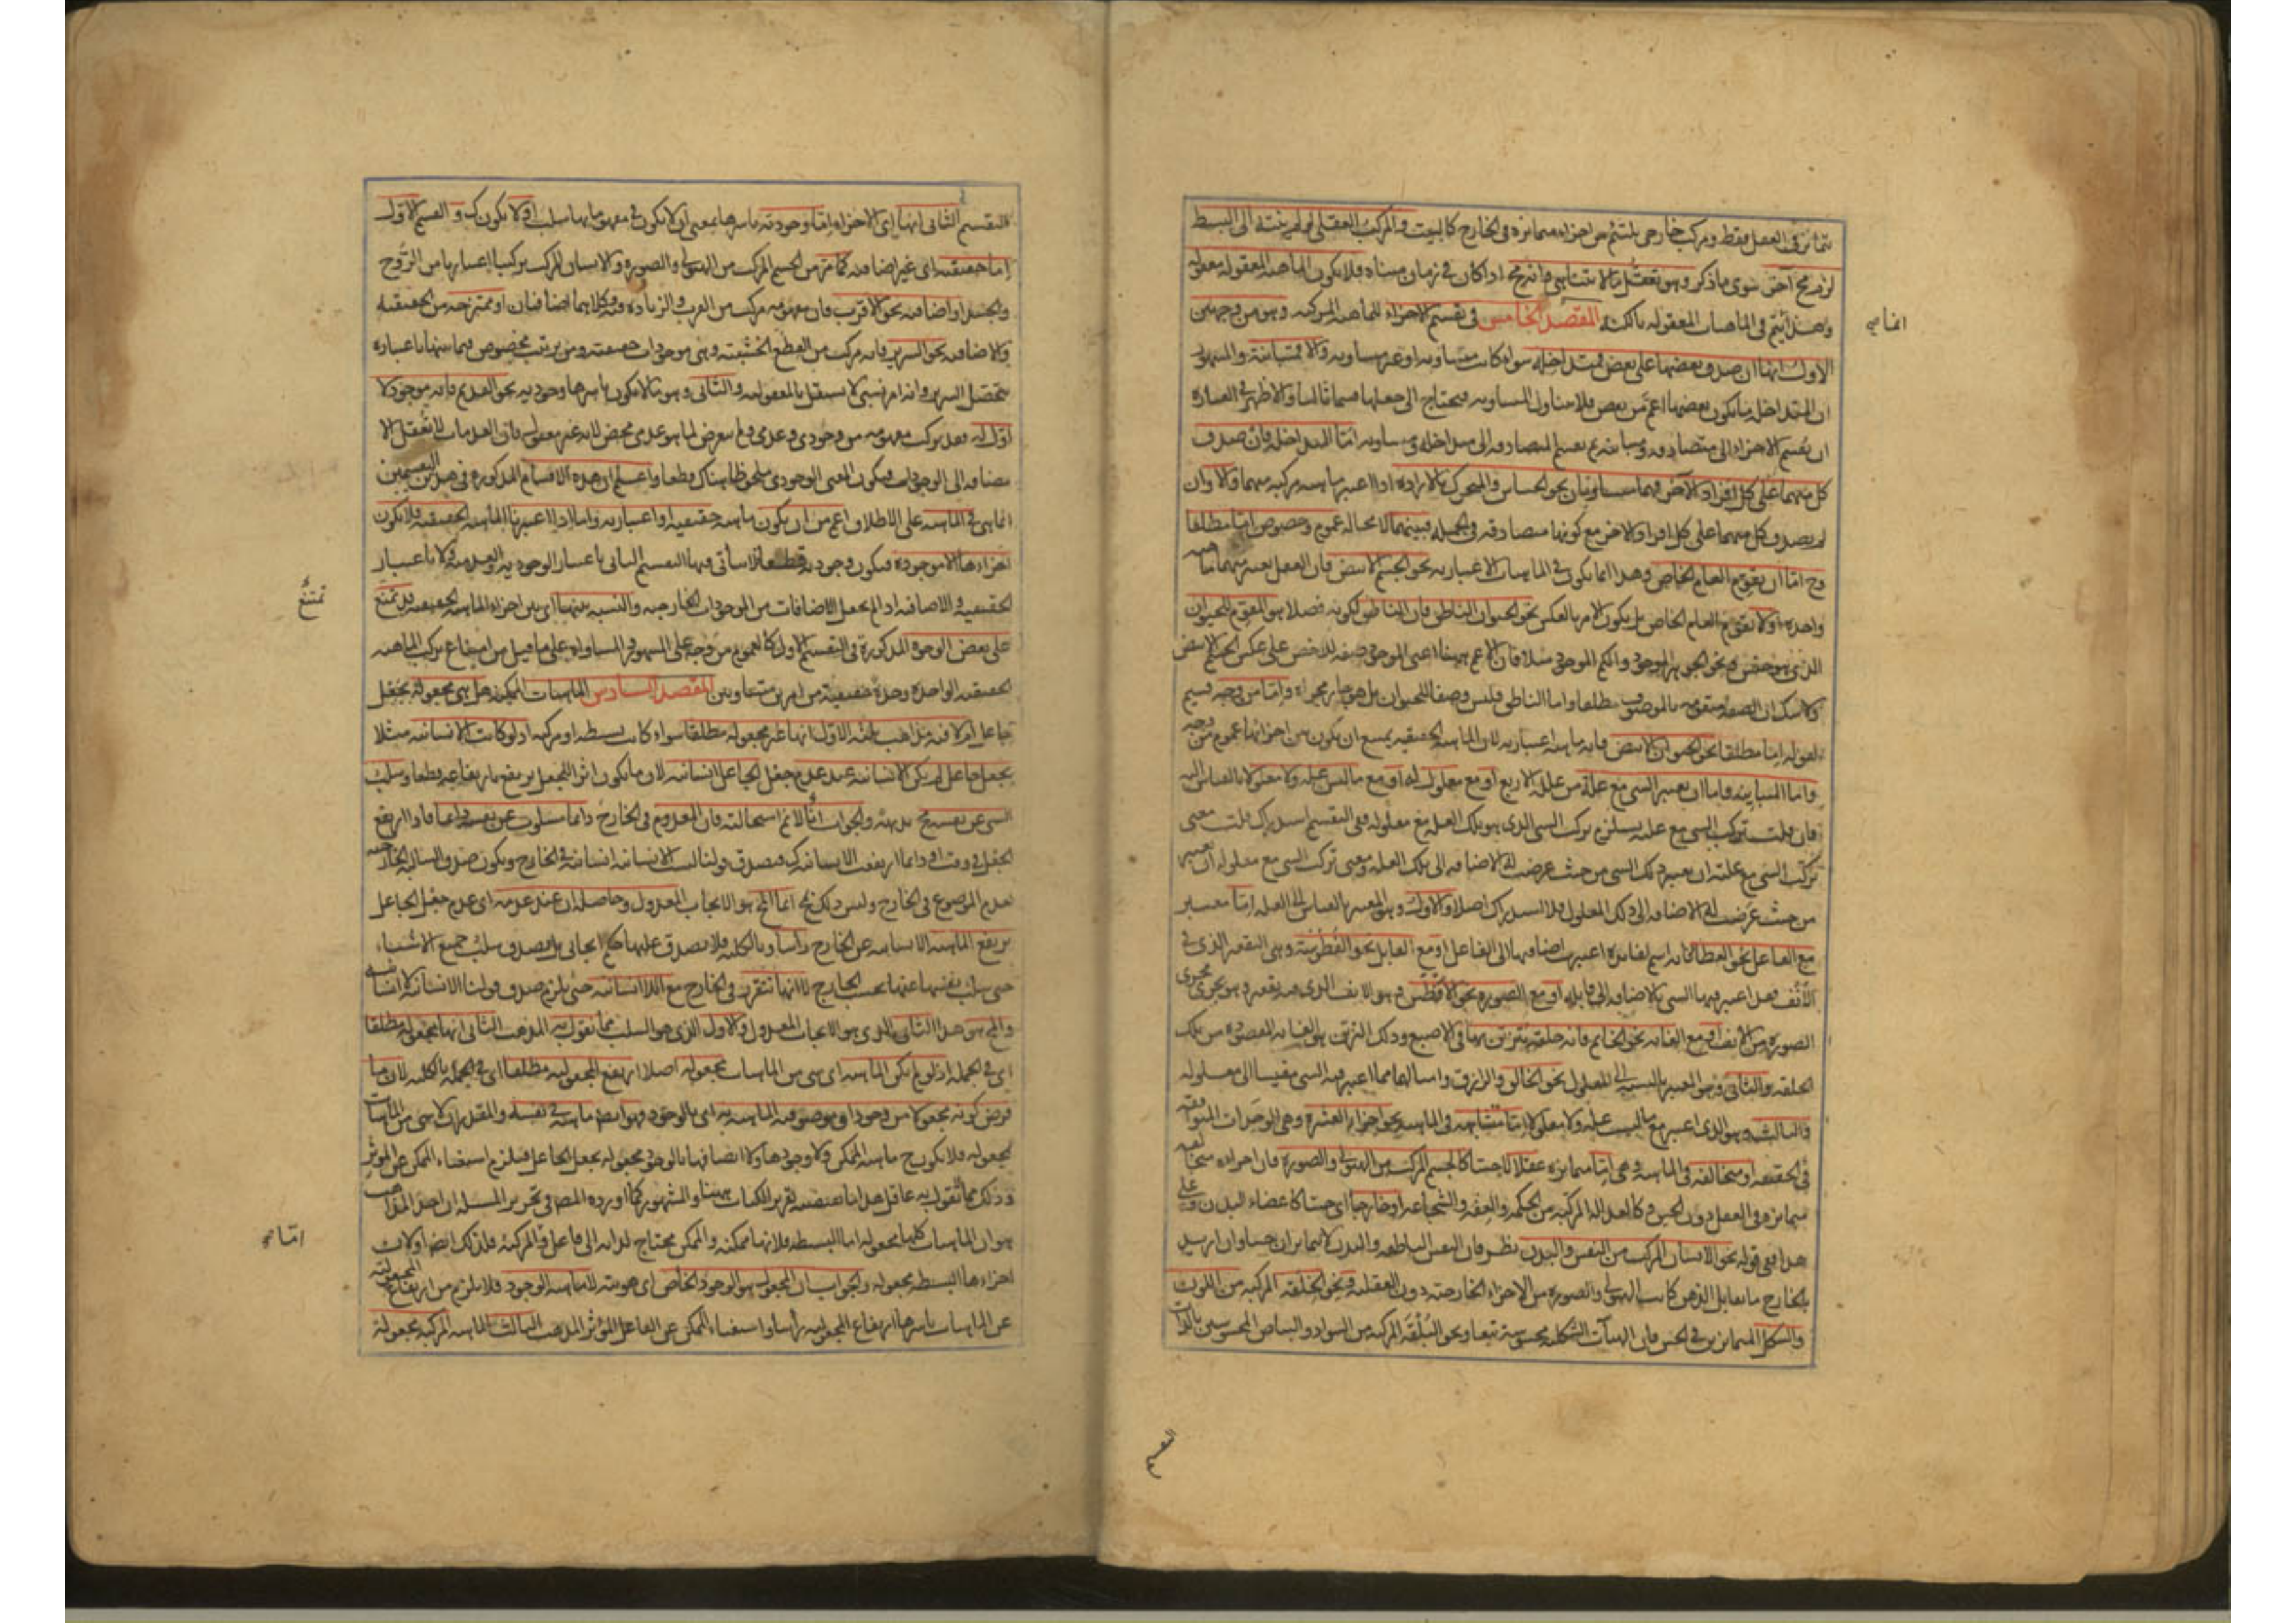 يتمايز في العقل فقط ومركب خارجي يلتئم من اجزاء متمايزة في الخارج كالبيت والمركب العقلي لو لم ينته الى البسيط
لزم مح آخر سوى ما ذكر وهو تعقل ما لا يتناهى وانه مح اذا كان في زمان متناه فلا يكون الماهية المعقولة معقولة
وهذا يتم في الماهيات المعقولة بالكنه المقصد الخامس في تقسيم الاجزاء للماهية المركبة وهو من وجهين
الاول انها ان صدق بعضها على بعض فمتداخلة سواء كانت متساوية او غير متساوية والا فمتباينة والمشهور
ان المتداخلة ما يكون بعضها اعم من بعض فلا يتناول المتساوية فيحتاج الى جعلها قسما ثالثا والاظهر في العبارة
ان يقسم الاجزاء الى متصادقة ومتباينة ثم يقسم المتصادقة الى متداخلة ومتساوية اما المتداخلة فان صدق
كل منهما على كل افراد الآخر فهما متساويان نحو الحساس والمتحرك بالارادة اذا اعتبر ماهية مركبة منهما والا وان
لم يصدق كل منهما على كل افراد الاخر مع كونها متصادقة في الجملة فبينهما لا محالة عموم وخصوص اما مطلقا
وح اما ان يقوم العام الخاص وهذا انما يكون في الماهيات الاعتبارية نحو الجسم الابيض فان العقل يعتبر منهما ماهية
واحدة او لا يقوم العام الخاص بل يكون الامر بالعكس نحو الحيوان الناطق فان الناطق لكونه فصلا هو المقوم للحيوان
الذي هو جنس ونحو الجوهر الموجود والكم الموجود مثلا فان الاعم ههنا اعني الموجود صفة للاخص على عكس الجسم الابيض
ولا شك ان الصفة متقومة بالموصوف مطلقا واما الناطق فليس وصفا للحيوان بل هو جار مجراه واما من وجه قسيم
لقوله اما مطلقا نحو الحيوان الابيض فانه ماهية اعتبارية لان الماهية الحقيقية يمتنع ان يكون بين اجزائها عموم من وجه
واما المتباينة فاما ان يعتبر الشي مع علة من علله الاربع او مع معلول له او مع ما ليس علة ولا معلولا بالقياس اليه
فان قلت تركب الشي مع علته يستلزم تركب الشي الذي هو تلك العلة مع معلوله ففي التقسيم استدراك قلت معنى
تركب الشي مع علته ان يعتبر ذلك الشي من حيث عرضت له الاضافة الى تلك العلة ومعنى تركب الشي مع معلوله ان يعتبر
من حيث عرضت له الاضافة الى ذلك المعلول فلا استدراك اصلا والاول وهو المعتبر بالقياس الى العلة اما معتبر
مع الفاعل نحو العطاء فانه اسم لفائدة اعتبرت اضافتها الى الفاعل او مع القابل نحو الفطوسة وهي التقعير الذي في
الانف فقد اعتبر فيها الشي بالاضافة الى قابله او مع الصورة نحو الافطس وهو الانف الذي فيه تقعير وهو يجري مجرى
الصورة من الانف او مع الغاية نحو الخاتم فانه حلقة يتزين بها في الاصبع وذلك التزين هو الغاية المقصودة من تلك
الحلقة والثاني وهو المعتبر بالنسبة الى المعلول نحو الخالق والرازق وامثالهما مما اعتبر فيه الشي مقيسا الى معلوله
والثالث وهو الذي اعتبر مع ما ليس علة ولا معلولا اما متشابهة في الماهية نحو اجزاء العشرة وهي الوحدات المتوافقة
في الحقيقة او متخالفة في الماهية وهي اما متمايزة عقلا لا حسا كالجسم المركب من الهيولى والصورة فان اجزاءه متخالفة
متمايزة في العقل دون الحس وكالعدالة المركبة من الحكمة والعفة والشجاعة او خارجا اي حسا كاعضاء البدن وعلى
هذا ففي قوله نحو الانسان المركب من النفس والبدن نظر فان النفس الناطقة والبدن لا يتمايزان حسا وان اريد
بالخارج ما يقابل الذهن كانت الهيولى والصورة من الاجزاء الخارجية دون العقلية ونحو الخلقة المركبة من اللون
والشكل المتمايزين في الحس فان الهيآت الشكلية محسوسة تبعا ونحو البلقة المركبة من السواد والبياض المحسوسين بالذات
ايضا صح
التقسيم
التقسيم الثاني انها اي الاجزاء اما وجودية باسرها بمعنى ان لا يكون في مفهوماتها سلب او لا يكون ك والقسم الاول
اما حقيقية اي غير اضافية كما مر من الجسم المركب من الهيولى والصورة والانسان المركب تركيبا اعتباريا من الروح
والجسد او اضافية نحو الاقرب فان مفهومه مركب من القرب والزيادة فيه وكلاهما اضافيان او ممتزجة من الحقيقية
والاضافية نحو السرير فانه مركب من القطع الخشبية وهي موجودات حقيقية ومن ترتيب مخصوص فيما بينها باعتباره
يتحصل السرير وانه امر نسبي لا يستقل بالمعقولية والثاني وهو ما لا يكون باسرها وجودية نحو القديم فانه موجود لا
اول له فقد تركب مفهومه من وجودي وعدمي ولم يتعرض لما هو عدمي محض لانه غير معقول فان العدمات لا تعقل الا
مضافة الى الوجودات فيكون المعنى الوجودي ملحوظا هناك قطعا واعلم ان هذه الاقسام المذكورة في هذين التقسيمين
انما هي في الماهية على الاطلاق اعم من ان يكون ماهية حقيقية او اعتبارية واما اذا اعتبرنا الماهية الحقيقية فلا يكون
اجزاءها الا موجودة فيكون وجودية قطعا فلا يتأتى فيها التقسيم الثاني باعتبار الوجودية والعدمية ولا باعتبار
الحقيقية والاضافية اذا لم يجعل الاضافات من الموجودات الخارجية والنسبة بينها اي بين اجزاء الماهية الحقيقية قد يمتنع
على بعض الوجوه المذكورة في التقسيم الاول كالعموم من وجه على المشهور والمساواة على ما قيل من امتناع تركب الماهية
الحقيقية الواحدة وحدة حقيقية من امرين متساويين المقصد السادس الماهيات الممكنة هل هي مجعولة بجعل
جاعل ام لا فيه مذاهب ثلثة الاول انها غير مجعولة مطلقا سواء كانت بسيطة او مركبة اذ لو كانت الانسانية مثلا
بجعل جاعل لم يكن الانسانية عند عدم جعل الجاعل انسانية لان ما يكون اثرا للجعل يرتفع بارتفاعه قطعا وسلب
الشي عن نفسه مح بديهة والجواب انا لا نم استحالته فان المعدوم في الخارج دائما مسلوب عن نفسه دائما فاذا ارتفع
الجعل في وقت او دائما ارتفعت الانسانية ك فيصدق قولنا ليست الانسانية انسانية في الخارج ويكون صدق السالبة الخارجية
لعدم الموضوع في الخارج وليس ذلك بمح انما المح هو الايجاب المعدول وحاصله ان عند عدمه اي عدم جعل الجاعل
يرتفع الماهية الانسانية عن الخارج رأسا وبالكلية فلا يصدق عليها حكم ايجابي بل يصدق سلب جميع الاشياء
حتى سلب نفسها عنها بحسب الخارج لا انها تتقرر في الخارج مع اللاانسانية حتى يلزم صدق قولنا الانسانية لا انسانية
والمح هو هذا الثاني الذي هو الايجاب المعدول والاول الذي هو السلب مما نقول به المذهب الثاني انها مجعولة مطلقا
اي في الجملة اذ لو لم يكن الماهية اي شي من الماهيات مجعولة اصلا ارتفع المجعولية مطلقا اي في الجملة بالكلية لان ما
فرض كونه مجعولا من وجود او موصوفية الماهية به اي بالوجود فهو ايضا ماهية في نفسه والمقدر ان لا شي من الماهيات
بمجعولة فلا يكون ح ماهية الممكن ولا وجودها ولا اتصافها بالوجود مجعولة بجعل الجاعل فيلزم استغناء الممكن عن المؤثر
وذلك مما لا يقول به عاقل هذا ما يقتضيه تقرير الكتاب ههنا والمشهور كما اورده المص في تحرير المسئلة ان احد المذاهب
هو ان الماهيات كلها مجعولة اما البسيطة فلانها ممكنة والممكن محتاج لذاته الى فاعل والمركبة فلذلك ايضا او لان
اجزاءها البسيطة مجعولة والجواب ان المجعول هو الوجود الخاص اي هويته لا ماهية الوجود فلا يلزم من ارتفاع المجعولية
عن الماهيات باسرها ارتفاع المجعولية رأسا واستغناء الممكن عن الفاعل المؤثر المذهب الثالث الماهية المركبة مجعولة
تمتنع
اما صح